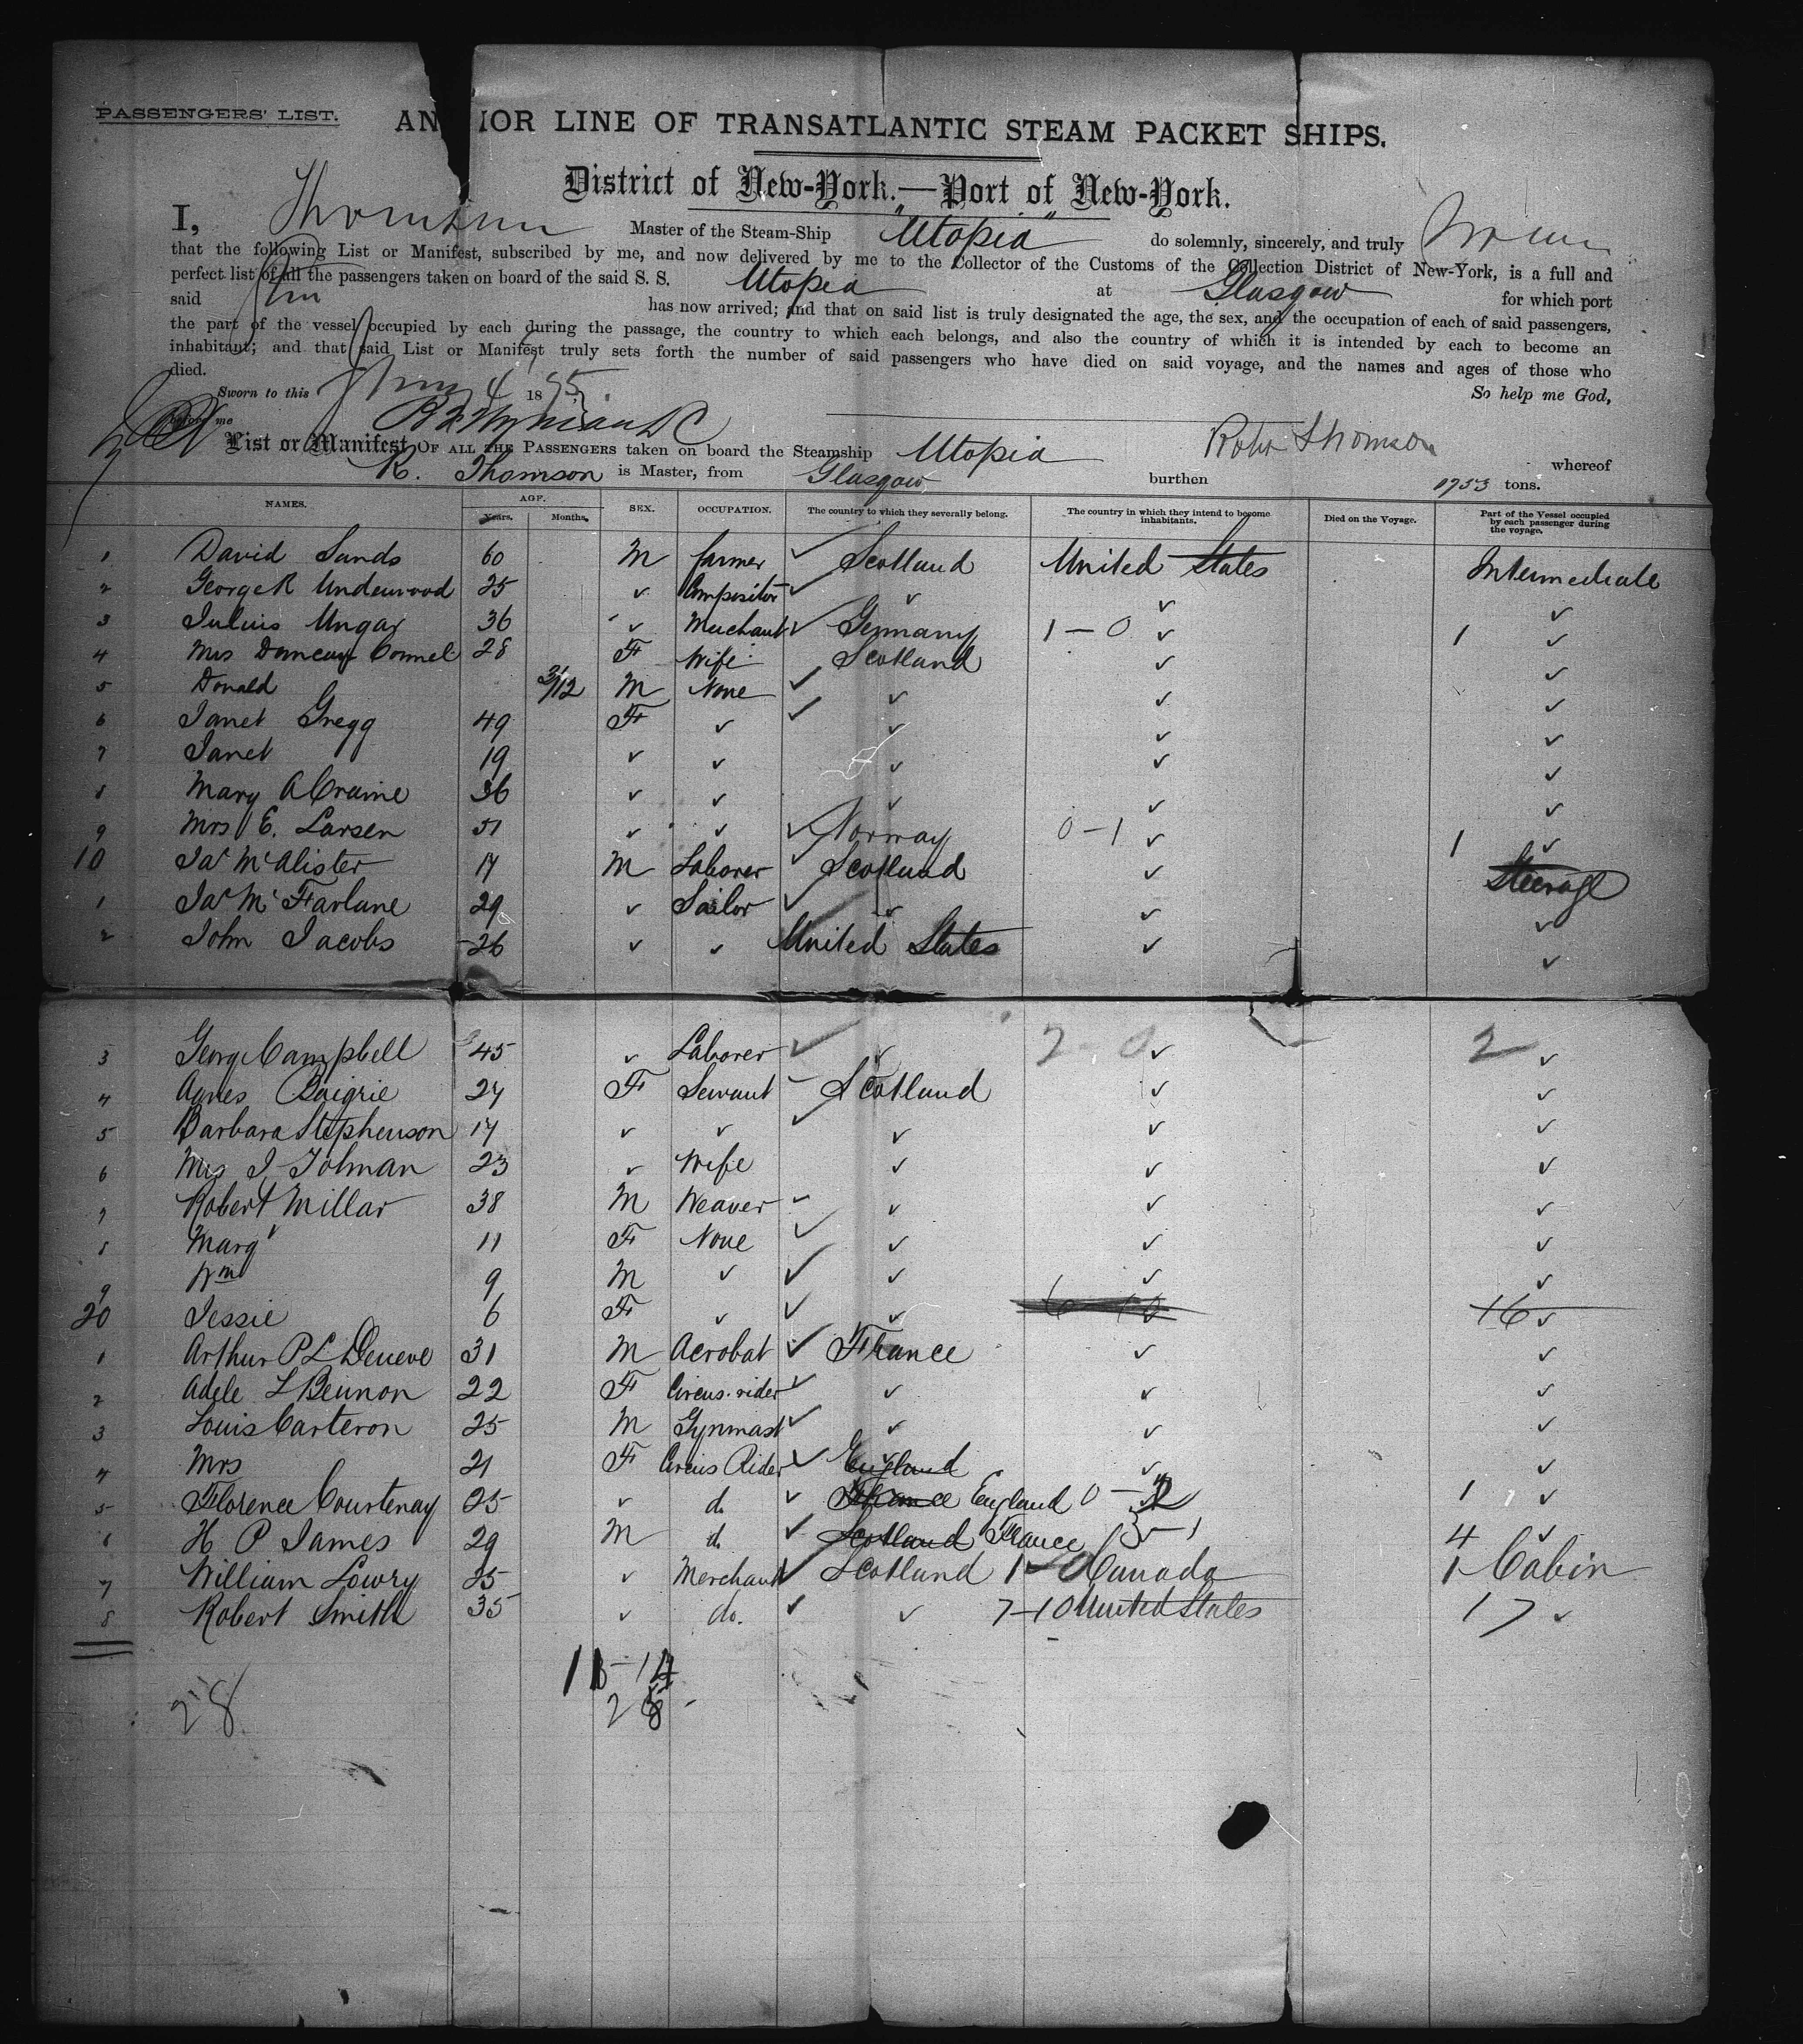 PASSENGERS' LIST.
ANCHOR LINE OF TRANSATLANTIC STEAM PACKET SHIPS.
District of New-York.—Port of New-York.
I, Thomson Master of the Steam-Ship "Utopia" do solemnly, sincerely, and truly
that the following List or Manifest, subscribed by me, and now delivered by me to the Collector of the Customs of the Collection District of New-York, is a full and
perfect list of all the passengers taken on board of the said S. S. Utopia at Glasgow for which port
said has now arrived; and that on said list is truly designated the age, the sex, and the occupation of each of said passengers,
the part of the vessel occupied by each during the passage, the country to which each belongs, and also the country of which it is intended by each to become an
inhabitant; and that said List or Manifest truly sets forth the number of said passengers who have died on said voyage, and the names and ages of those who
died.
Sworn to this 4 18 So help me God,
before me Robt Thomson
List or Manifest OF ALL THE PASSENGERS taken on board the Steamship Utopia whereof
R. Thomson is Master, from Glasgow burthen 1753 tons.
NAMES. AGE. Years. Months. SEX. OCCUPATION. The country to which they severally belong. The country in which they intend to become inhabitants. Died on the Voyage. Part of the Vessel occupied by each passenger during the voyage.
1 David Sands 60 M farmer ✓ Scotland United States Intermediate
2 George R Underwood 25 ✓ Compositor ✓ ✓ ✓ ✓
3 Julius Ungar 36 ✓ Merchant ✓ Germany 1 – 0 ✓ 1 ✓
4 Mrs Duncan Connel 28 F Wife Scotland ✓ ✓
5 Donald 3/12 M None ✓ ✓ ✓ ✓
6 Janet Gregg 49 F ✓ ✓ ✓ ✓ ✓
7 Janet 19 ✓ ✓ ✓ ✓ ✓
8 Mary A Craine 36 ✓ ✓ ✓ ✓ ✓
9 Mrs E. Larsen 51 ✓ ✓ ✓ Norway 0 – 1 ✓ 1 ✓
10 Jas McAlister 17 M Laborer ✓ Scotland ✓ Steerage
1 Jas McFarlane 29 ✓ Sailor ✓ ✓ ✓ ✓
2 John Jacobs 26 ✓ ✓ United States ✓ ✓
3 George Campbell 45 ✓ Laborer ✓ ✓ 2 0 ✓ 2 ✓
4 Agnes Baigrie 24 F Servant – Scotland ✓ ✓
5 Barbara Stephenson 17 ✓ ✓ ✓ ✓ ✓ ✓
6 Mrs J. Tolman 23 ✓ Wife ✓ ✓ ✓
7 Robert Millar 38 M Weaver ✓ ✓ ✓ ✓
8 Margt 11 F None ✓ ✓ ✓ ✓
9 Wm 9 M ✓ ✓ ✓ ✓ ✓
20 Jessie 6 F ✓ ✓ ✓ 6 10 16 ✓
1 Arthur P L Deneve 31 M Acrobat ✓ France ✓ ✓
2 Adele L Bennon 22 F Circus rider ✓ ✓ ✓ ✓
3 Louis Carteron 25 M Gymnast ✓ ✓ ✓ ✓
4 Mrs 21 F Circus Rider ✓ England ✓ ✓
5 Florence Courtenay 25 ✓ do ✓ France England 0 – 2 1 ✓
6 H P James 29 M do ✓ Scotland France 3 – 1 4 ✓
7 William Lowry 25 ✓ Merchant ✓ Scotland 1 – 0 Canada 1 Cabin
8 Robert Smith 35 ✓ do. ✓ ✓ 7 – 10 United States 17 ✓
28
28